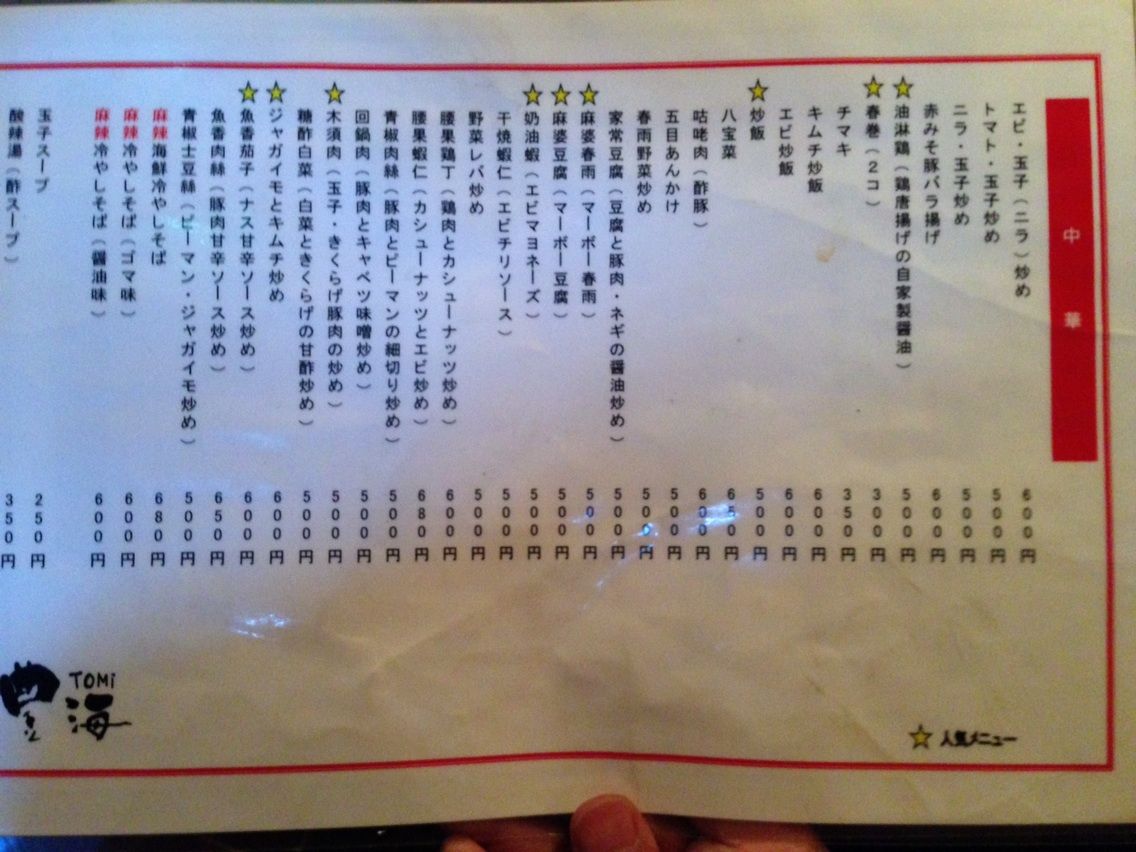 中華
エビ・玉子(ニラ)炒め 600円
トマト・玉子炒め 500円
ニラ・玉子炒め 500円
赤みそ豚バラ揚げ 600円
油淋鶏(鶏唐揚げの自家製醤油) 500円
春巻(2コ) 300円
チマキ 350円
キムチ炒飯 600円
エビ炒飯 600円
炒飯 500円
八宝菜 650円
咕咾肉(酢豚) 600円
五目あんかけ 500円
春雨野菜炒め 500円
家常豆腐(豆腐と豚肉・ネギの醤油炒め) 500円
麻婆春雨(マーボー春雨) 500円
麻婆豆腐(マーボー豆腐) 500円
奶油蝦(エビマヨネーズ) 500円
干焼蝦仁(エビチリソース) 500円
野菜レバ炒め 500円
腰果鶏丁(鶏肉とカシューナッツ炒め) 600円
腰果蝦仁(カシューナッツとエビ炒め) 680円
青椒肉絲(豚肉とピーマンの細切り炒め) 500円
回鍋肉(豚肉とキャベツ味噌炒め) 500円
木須肉(玉子・きくらげ豚肉の炒め) 500円
糖酢白菜(白菜ときくらげの甘酢炒め) 500円
ジャガイモとキムチ炒め 600円
魚香茄子(ナス甘辛ソース炒め) 600円
魚香肉絲(豚肉甘辛ソース炒め) 650円
青椒土豆絲(ピーマン・ジャガイモ炒め) 500円
麻辣海鮮冷やしそば 680円
麻辣冷やしそば(ゴマ味) 600円
麻辣冷やしそば(醤油味) 600円
玉子スープ 250円
酸辣湯(酢スープ) 350円
人気メニュー
TOMi
豊海